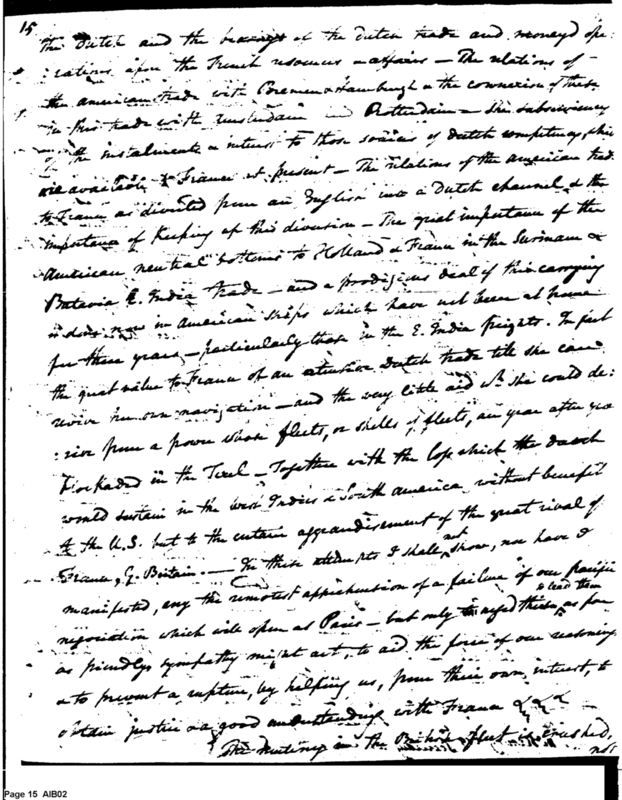 15
the Dutch and the bearings of the Dutch trade and money'd ope:
:rations upon the French resources & affairs — The relations of
the american trade with Bremen & Hamburgh & the connexion of these
in this trade with Amsterdam and Rotterdam — the subserviency
of the instalments & interest to those sources of Dutch competency, which
are available to France at present — The relations of the american trade
to France as diverted from an English into a Dutch channel, & the
importance of keeping up this diversion — The great importance of the
American neutral bottoms to Holland & France in the Surinam &
Batavia E. India trade — and a prodigious deal of this carrying
is done now in American ships which have not been at home
for three years — particularly those in the E. India freights. In fact
the great value to France of an extensive Dutch trade till she can
revive her own navigation — and the very little aid wh. she could de:
:rive from a power whose fleets, or shells of fleets, are year after year
blockaded in the Texel — Together with the loss which the Dutch
would sustain in the West Indies & South America, without benefit
to the U.S. but to the certain aggrandisement of the great rival of
France, G. Britain. — In these attempts I shall not show, nor have I
manifested, any the remotest apprehension of a failure of our pacific
negociation which will open at Paris — but only & lead them as far
as friendly sympathy might act, to aid the force of our reasoning
& to prevent a rupture, by helping us, from their own interest, to
obtain justice & a good understanding with France & & &
The Mutiny in the British fleet is crushed,
not
Page 15 AIB02